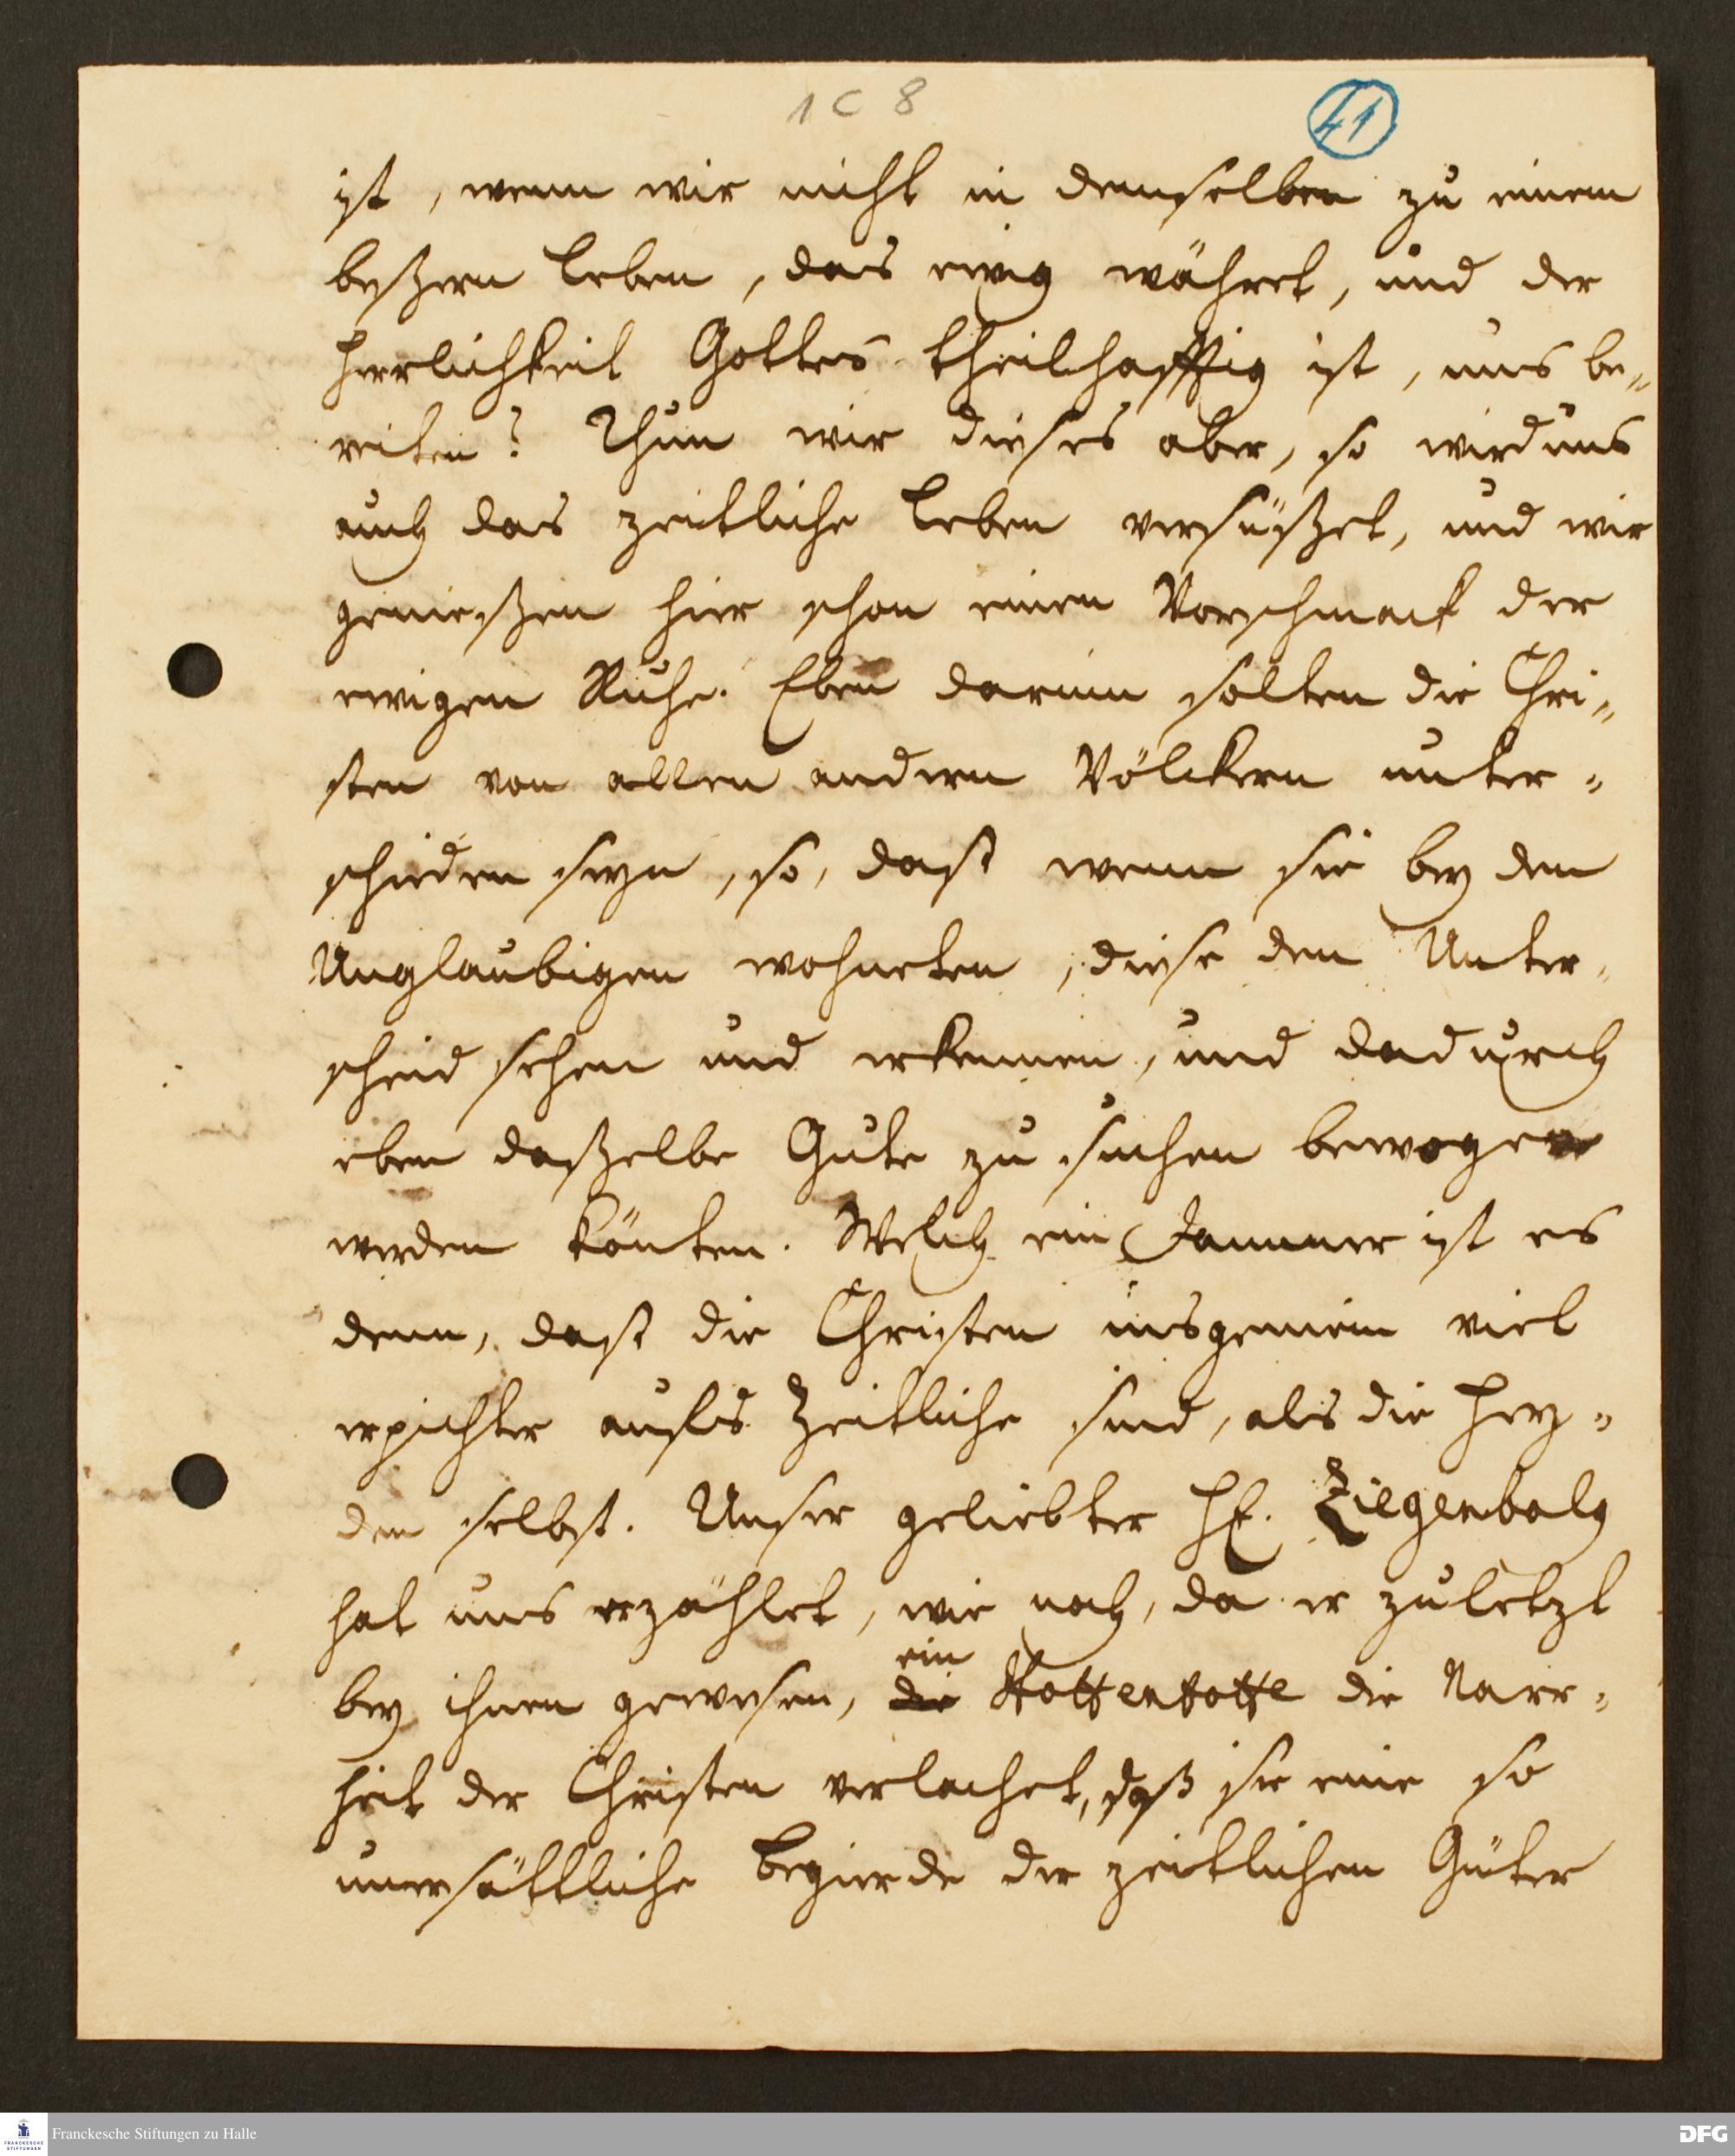 1 C 8
41
ist, wenn wir nicht in demselben zu einem
beszern Leben, das ewig währet, und der
Herrlichkeit Gottes theilhafftig ist, uns be„
reiten? Thun wir dieses aber, so wird uns
auch das zeitliche Leben versüszet, und wir
genieszen hier schon einen Vorschmack der
ewigen Ruhe. Eben darum solten die Chri„
sten von allen andern Völckern unter„
schieden seyn, so, dasz wenn sie bey den
Unglaubigen wohneten, diese den Unter„
scheid sehen und erkennen, und dadurch
eben daszelbe Gute zu suchen bewogen
werden könten. Welch ein Jammer ist es
denn, dasz die Christen insgemein viel
erpichter aufs Zeitliche sind, als die Hey„
den selbst. Unser geliebter H. Ziegenbalg
hat uns erzählet, wie noch, da er zuletzt
ein
bey ihnen gewesen, die Hottentotte die Narr„
heit der Christen verlachet, daß sie eine so
unersättliche Begierde der zeitlichen Güter
FRANCKESCHE STIFTUNGEN
Franckesche Stiftungen zu Halle
DFG